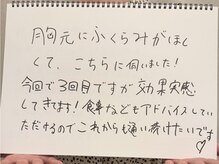 胸元にふくらみがほし
くて、こちらに伺いました!
今回で3回目ですが効果実感
してきます!食事などもアドバイスしてい
ただけるのでこれからも通い続けたいです
♡